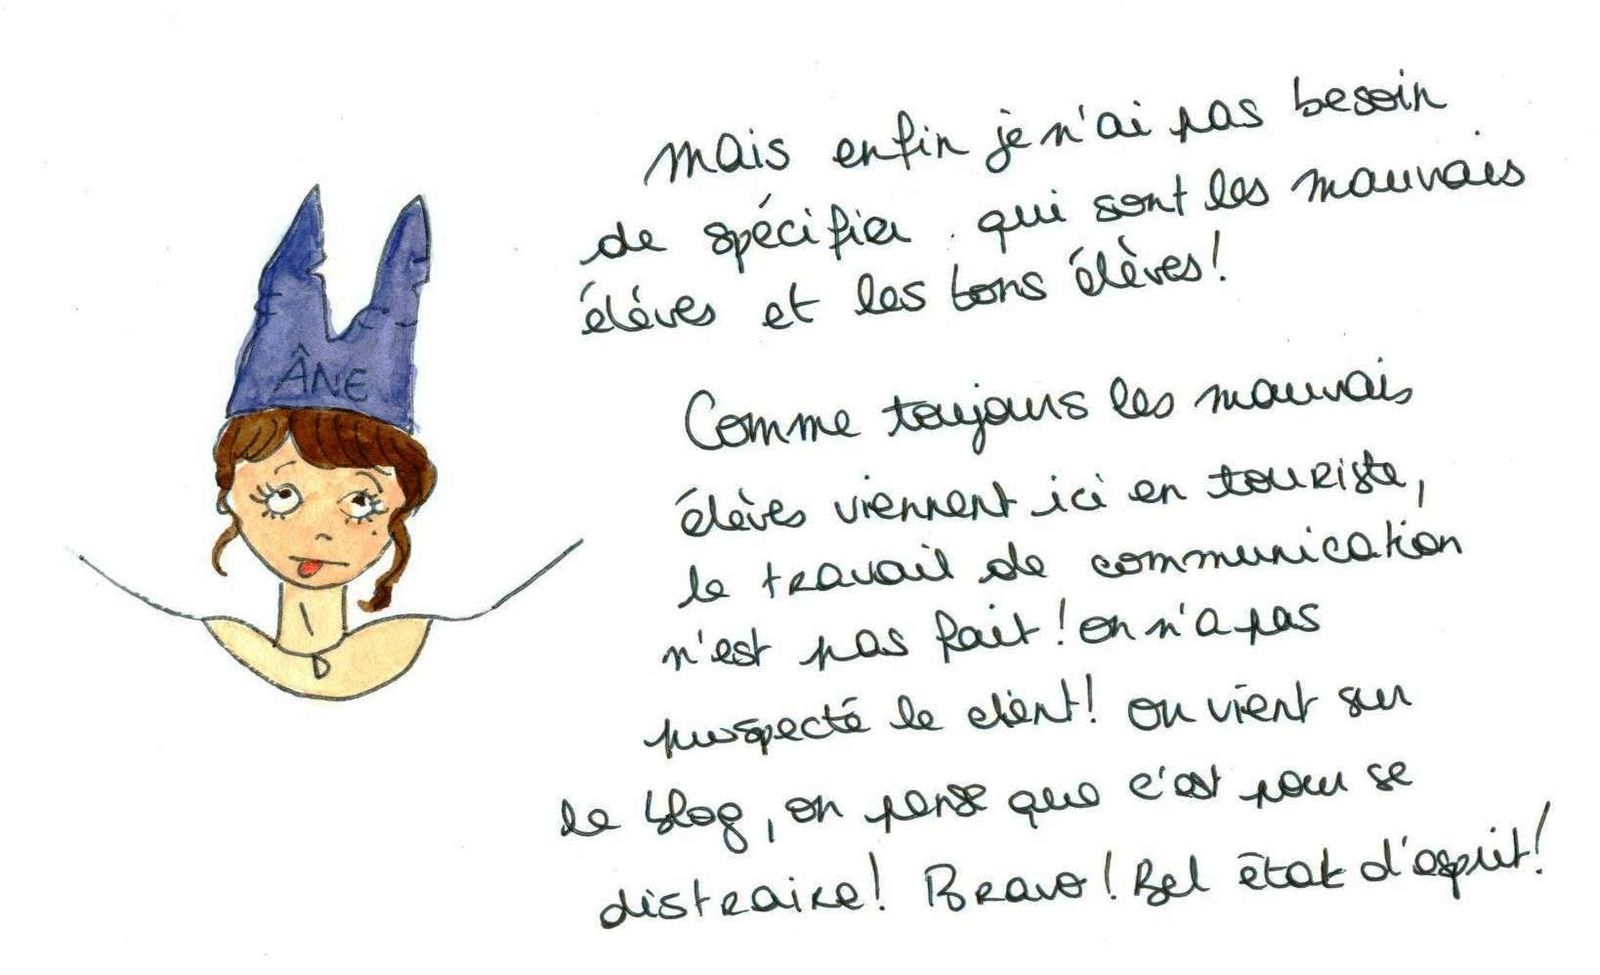 ÂNE
Mais enfin je n'ai pas besoin
de spécifier qui sont les mauvais
élèves et les bons élèves!
Comme toujours les mauvais
élèves viennent ici en touriste,
le travail de communication
n'est pas fait! on n'a pas
puspecté le client! on vient sur
le blog, on pense que c'est pour se
distraire! Bravo! Bel état d'esprit!